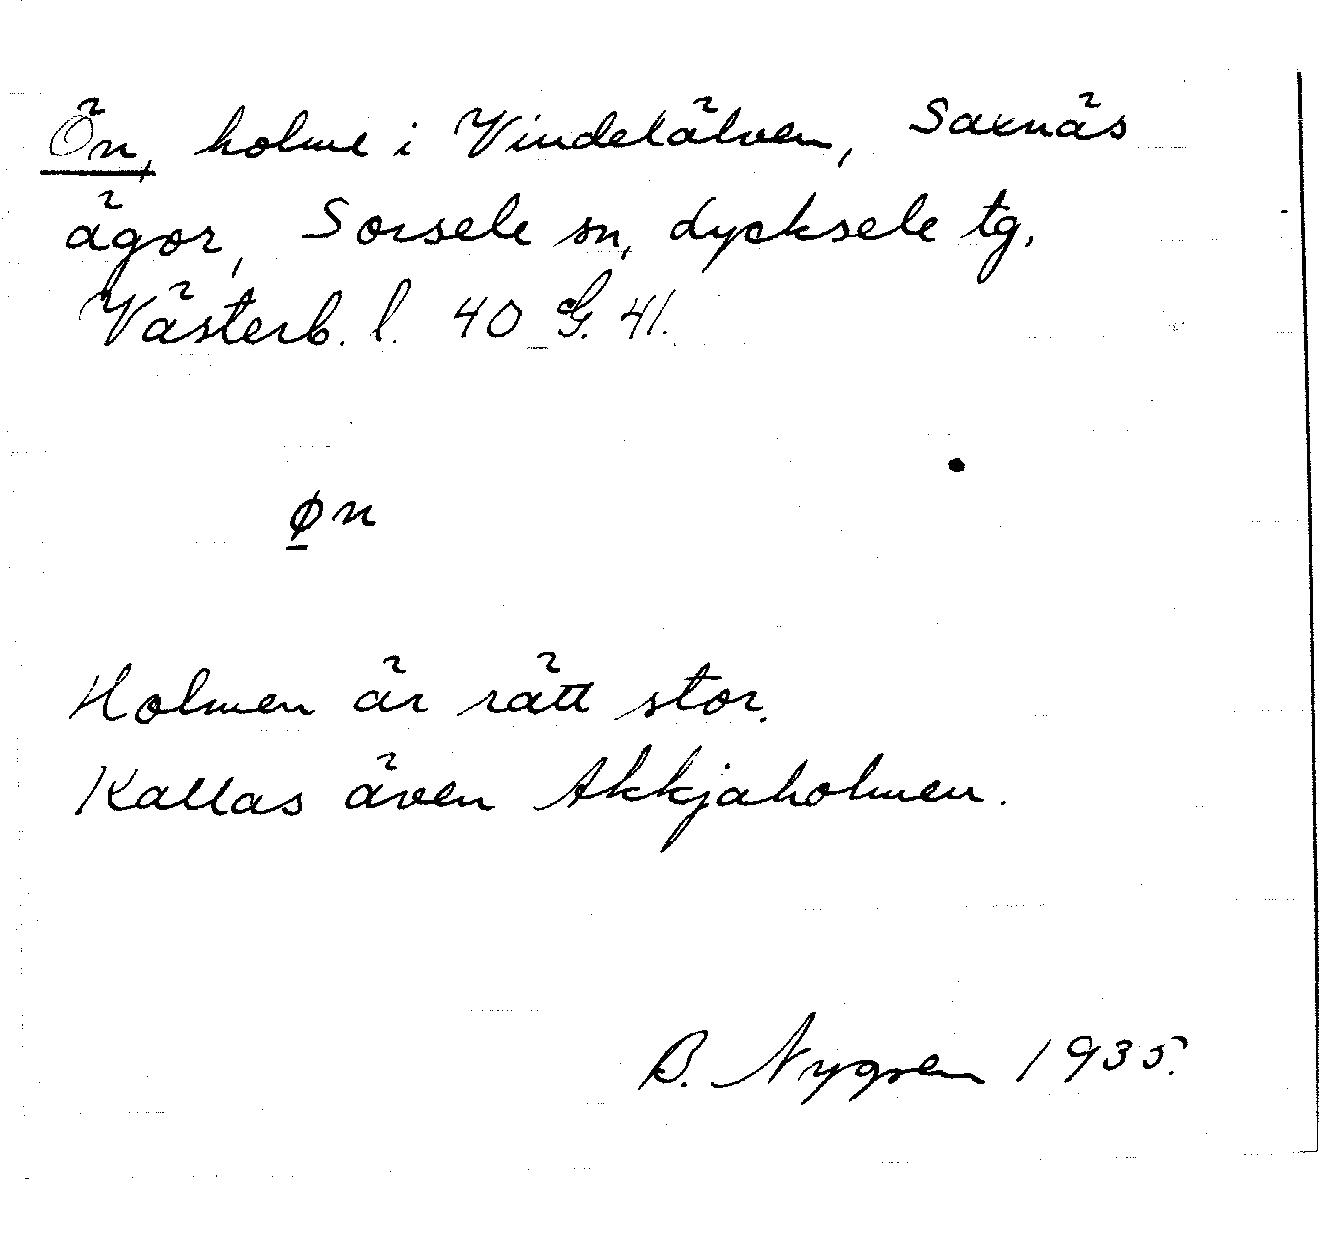 Ön, holme i Vindelälven, Saxnäs
ägor, Sorsele sn, Lycksele tg,
Västerb. l. 40 G. 41.
ø̲n
Holmen är rätt stor.
Kallas även Akkjaholmen.
B. Nygren 1935.